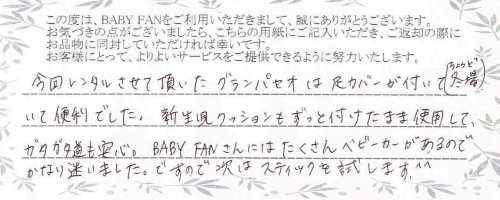 この度は、BABY FANをご利用いただきまして、誠にありがとうございます。
お気づきの点がございましたら、こちらの用紙にご記入いただき、ご返却の際に
お品物に同封していただければ幸いです。
お客様にとって、よりよいサービスをご提供できるように努力いたします。
ちょうど
今回レンタルさせて頂いたグランパセオは足カバーが付いて(冬場)
いて便利でした。新生児クッションもずっと付けたまま使用して、
ガタガタ道も安心。BABY FANさんにはたくさんベビーカーがあるので
かなり迷いました。ですので次はスティックを試します^^